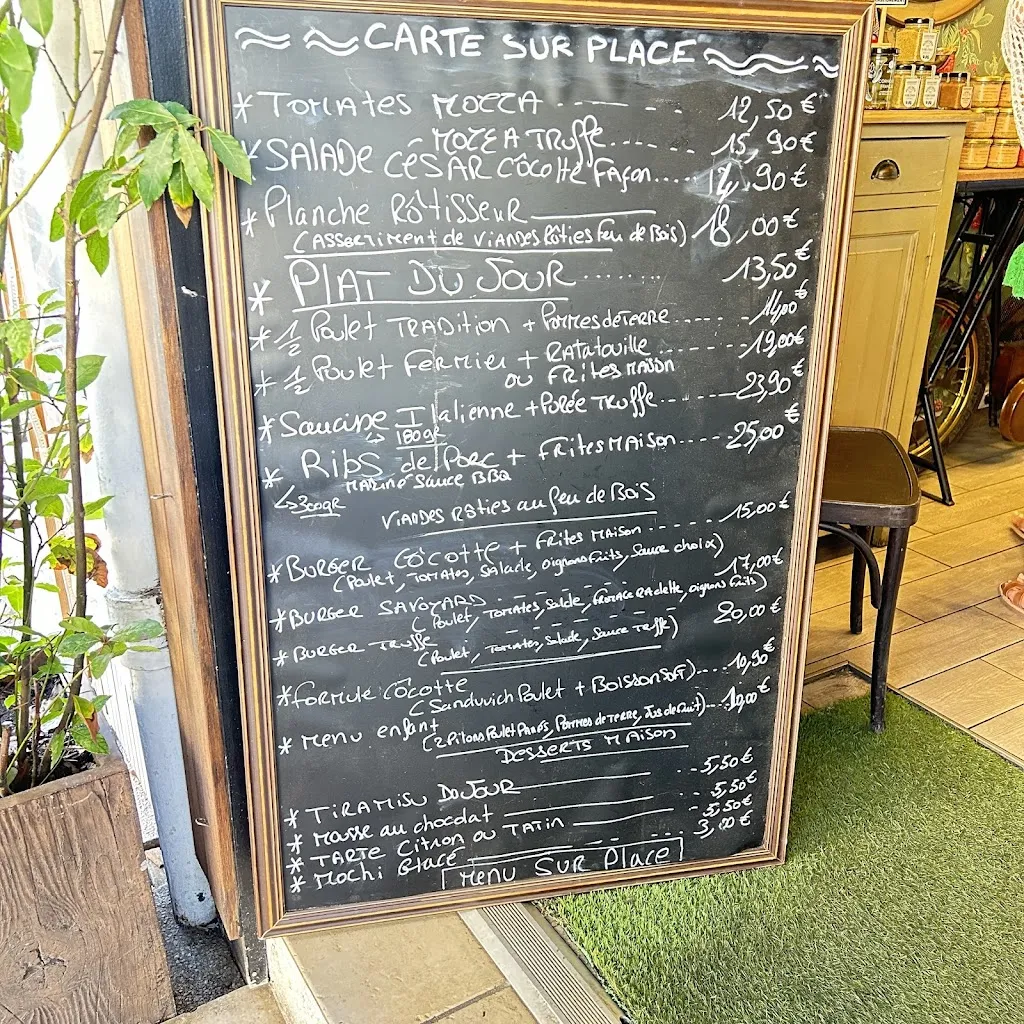 CARTE SUR PLACE
* TOMATES MOZZA 12,50€
MOZZA TRUFFE 15,90€
* SALADE CÉSAR CÔCOTTE FAÇON 14,90€
* Planche Rôtisseur
(ASSORTIMENT de VIANDES Rôties Feu de Bois) 18,00€
* PLAT DU JOUR 13,50€
* 1/2 Poulet TRADITION + POMMES de TERRE 14,00€
* 1/2 Poulet Fermier + RATATOUILLE 19,00€
OU FRITES MAISON
* Saucisse Italienne + Purée TRUFFE 23,90€
180gr
* RIBS de Porc + FRITES MAISON 25,00€
MARINÉ SAUCE BBQ
300gR
VIANDES RôTIES au feu de Bois
* BURGER CÔCOTTE + FRITES MAISON 15,00€
(Poulet, TOMATES, SALADE, oignons frits, Sauce choix)
* BURGER SAVOYARD 17,00€
(Poulet, TOMATES, Salade, FROMAGE RAclette, oignons frits)
* BURGER TRUFFE 20,00€
(Poulet, Tomates, Salade, Sauce Truffe)
* FORMULE CÔCOTTE
(Sandwich Poulet + BOISSON SOFT) 10,90€
* MENU enfant
(2 Pilons Poulet PANÉS, Pommes de TERRE, Jus de fruit) 10,00€
DESSERTS MAISON
* TIRAMISU DU JOUR 5,50€
* MOUSSE au chocolat 5,50€
* TARTE CITRON OU TATIN 5,50€
* MOCHI GLACÉ 3,00€
MENU SUR PLACE